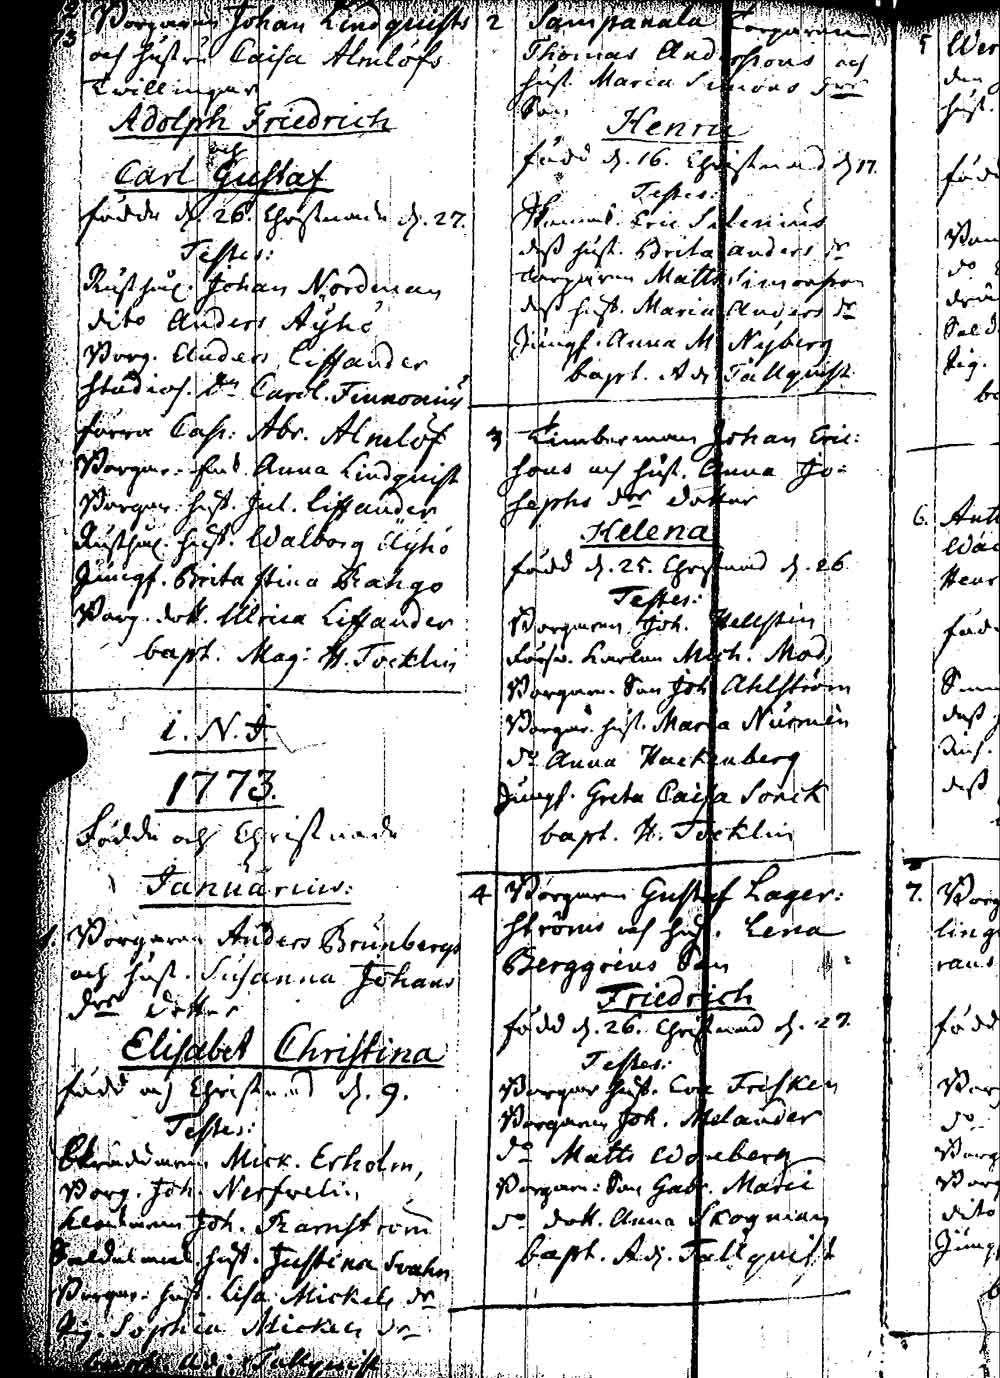 73 Borgaren Johan Lindquists
och hustru Caisa Almlöfs
Twillingar
Adolph Friedrich
och
Carl Gustaf
födde d. 26. Christnade d. 27.
Testes:
Rusthul. Johan Nordman
dito Anders Äyhö
Borg. Anders Liffander
studios. Carol.
förra Cap: Abr. Almlöf
Borgar. Anna Lindquist
Borgar. hust. Jul. Liffander
Rusthul. hust. Walborg Äyhö
Jungf. Brita Stina
Borg. dott. Ulrica Liffander
bapt. Mag: H. Tocklin
i. N. J.
1773.
Födde och Christnade
Januarius:
1. Borgaren Anders Brunbergs
och hust. Susanna Johans
dr dotter
Elisabet Christina
född och Christnad d. 9.
Testes:
Skräddaren Mick. Erholm,
Borg. Joh. Nerfvelin
Joh. Ramström
hust. Justina Svahn
Borgar. hust. Lisa Mickels dr
Pig. Sophia Mickels dr
bapt. Adj. Tallquist
2 Sampanala Torparen
Thomas Anderssons och
hust. Maria Simons dr
Son
Henric
född d. 16. Christnad d. 17.
Testes:
Eric Selenius
dess hust. Brita Anders dr
Torparen Matts Simonsson
dess hust. Maria Anders dr
Jungf. Anna M. Nyberg
bapt. Adj. Tallquist
3 Timberman Johan Eric:
sons och hust. Anna Jo:
sephs dr dotter
Helena
född d. 25. Christnad d. 26
Testes:
Borgaren Joh. Hellstin
Mich.
Borgare. Son Joh. Ahlström
Borgar. hust. Maria Nurmin
do Anna Hackenberg
Jungf. Greta Caisa Sonck
bapt. H. Tocklin
4 Borgaren Gustaf Lager:
ströms och hust. Lena
Berggrens Son
Friedrich
född d. 26. Christnad d. 27.
Testes:
Borgar hust. Eva Frisken
Borgaren Joh. Melander
do Matts
Borgare: Son Gabr.
do dott. Anna Skogman
bapt. Adj. Tallquist
5
den
hust.
född
6. Ant
född
dess
dess
7. Borg
född
Borg
do
Borg
Borg
dito
Jungf